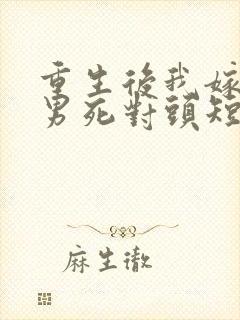 重生後我嫁
男死對頭短
麻生徹